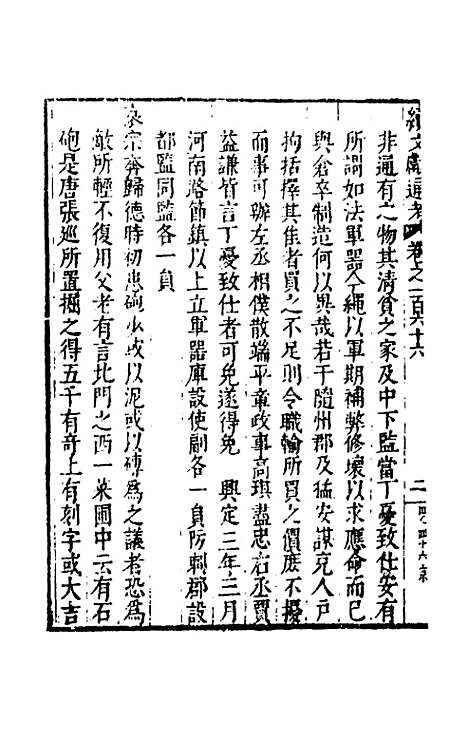 續文獻通考 卷之一百六十六 二
非通有之物其清貧之家及中下監當丁憂致仕安有
所謂如法軍器今繩以軍期補弊修壞以求應命而已
與倉卒制造何以異哉若于隨州郡及猛安謀克人戶
拘括擇其佳者買之不足則令職輸所買之價庶不擾
而事可辦左丞相僕散端平章政事高琪盡忠右丞賈
益謙皆言丁憂致仕者可免遂得免 興定三年三月
河南路節鎮以上立軍器庫設使副各一員防刺郡設
都監同監各一員
哀宗奔歸德時初患砲少或以泥或以磚爲之議者恐爲
敵所輕不復用父老有言北門之西一菜圃中云有石
砲是唐張巡所置掘之得五千有奇上有刻字或大吉